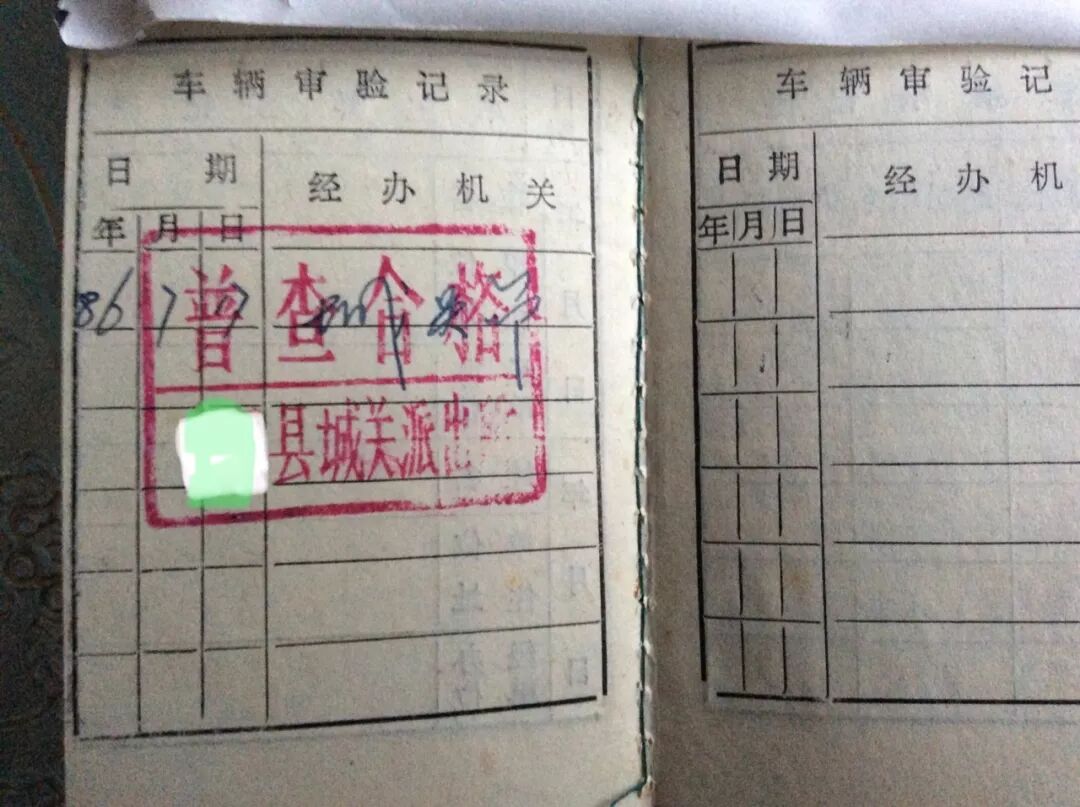 车辆审验记录
日期
经办机关
年月日
86 7
普查合格
县城关派出所
车辆审验记
日期
经办机
年月日